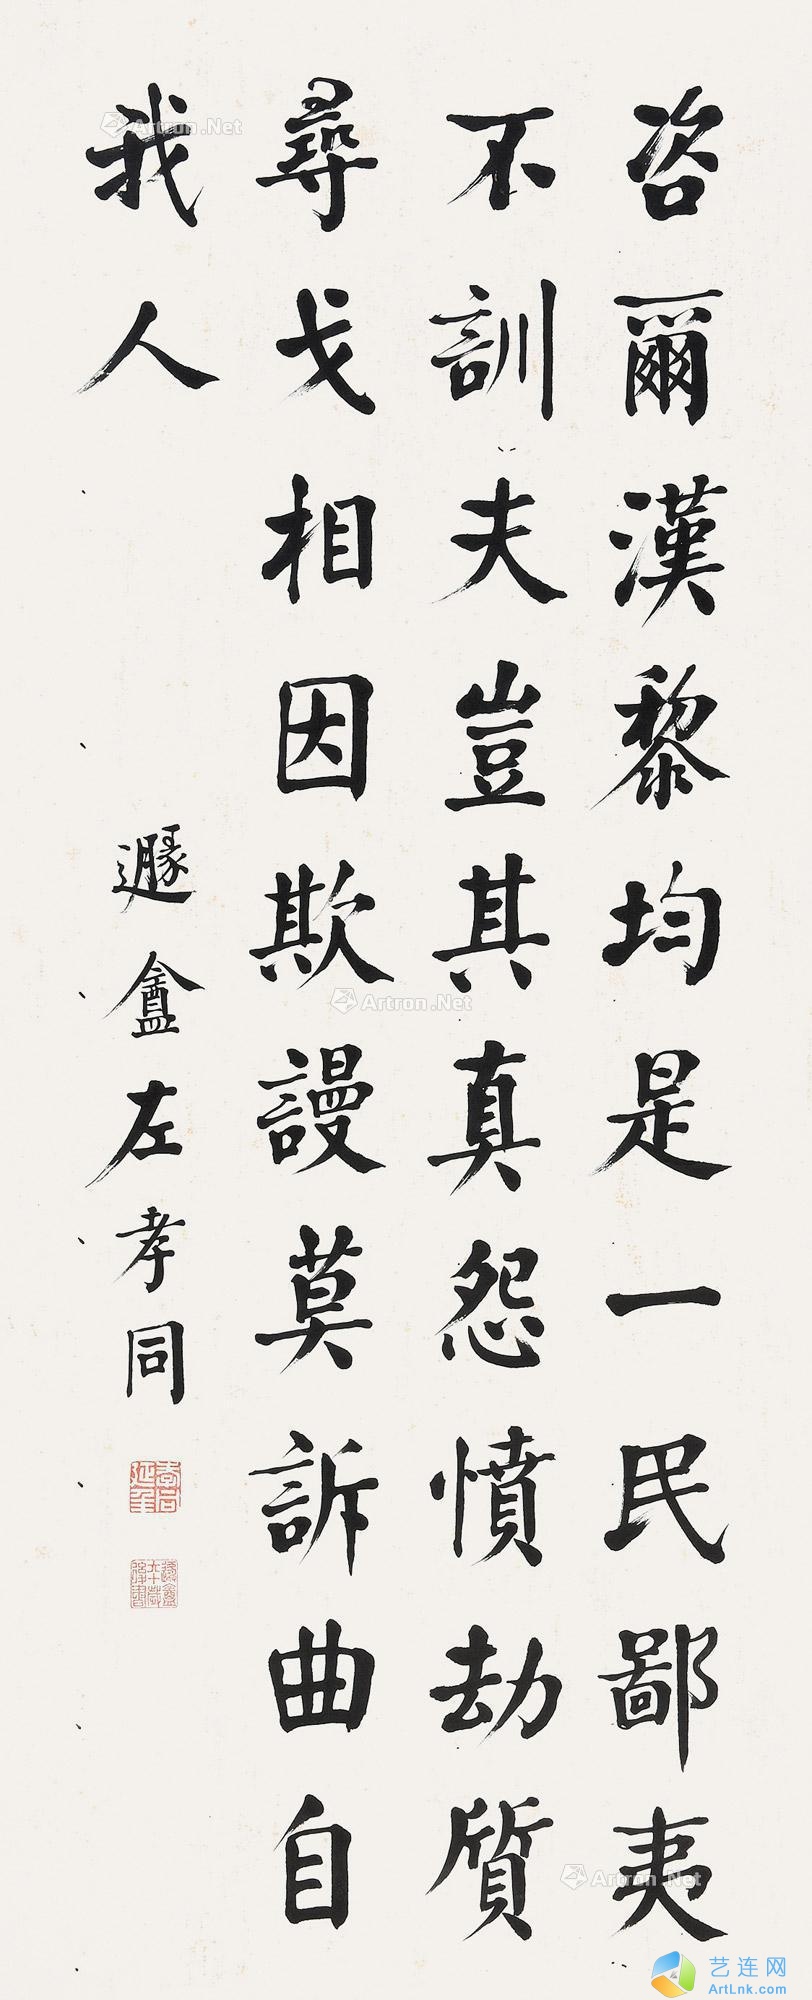 咨爾漢黎均是一民鄙夷
不訓夫豈其真怨憤劫質
尋戈相因欺謾莫訴曲自
我人
遯盦左孝同
Artron.Net
Artron.Net
Artron.Net
艺连网
ArtLnk.com